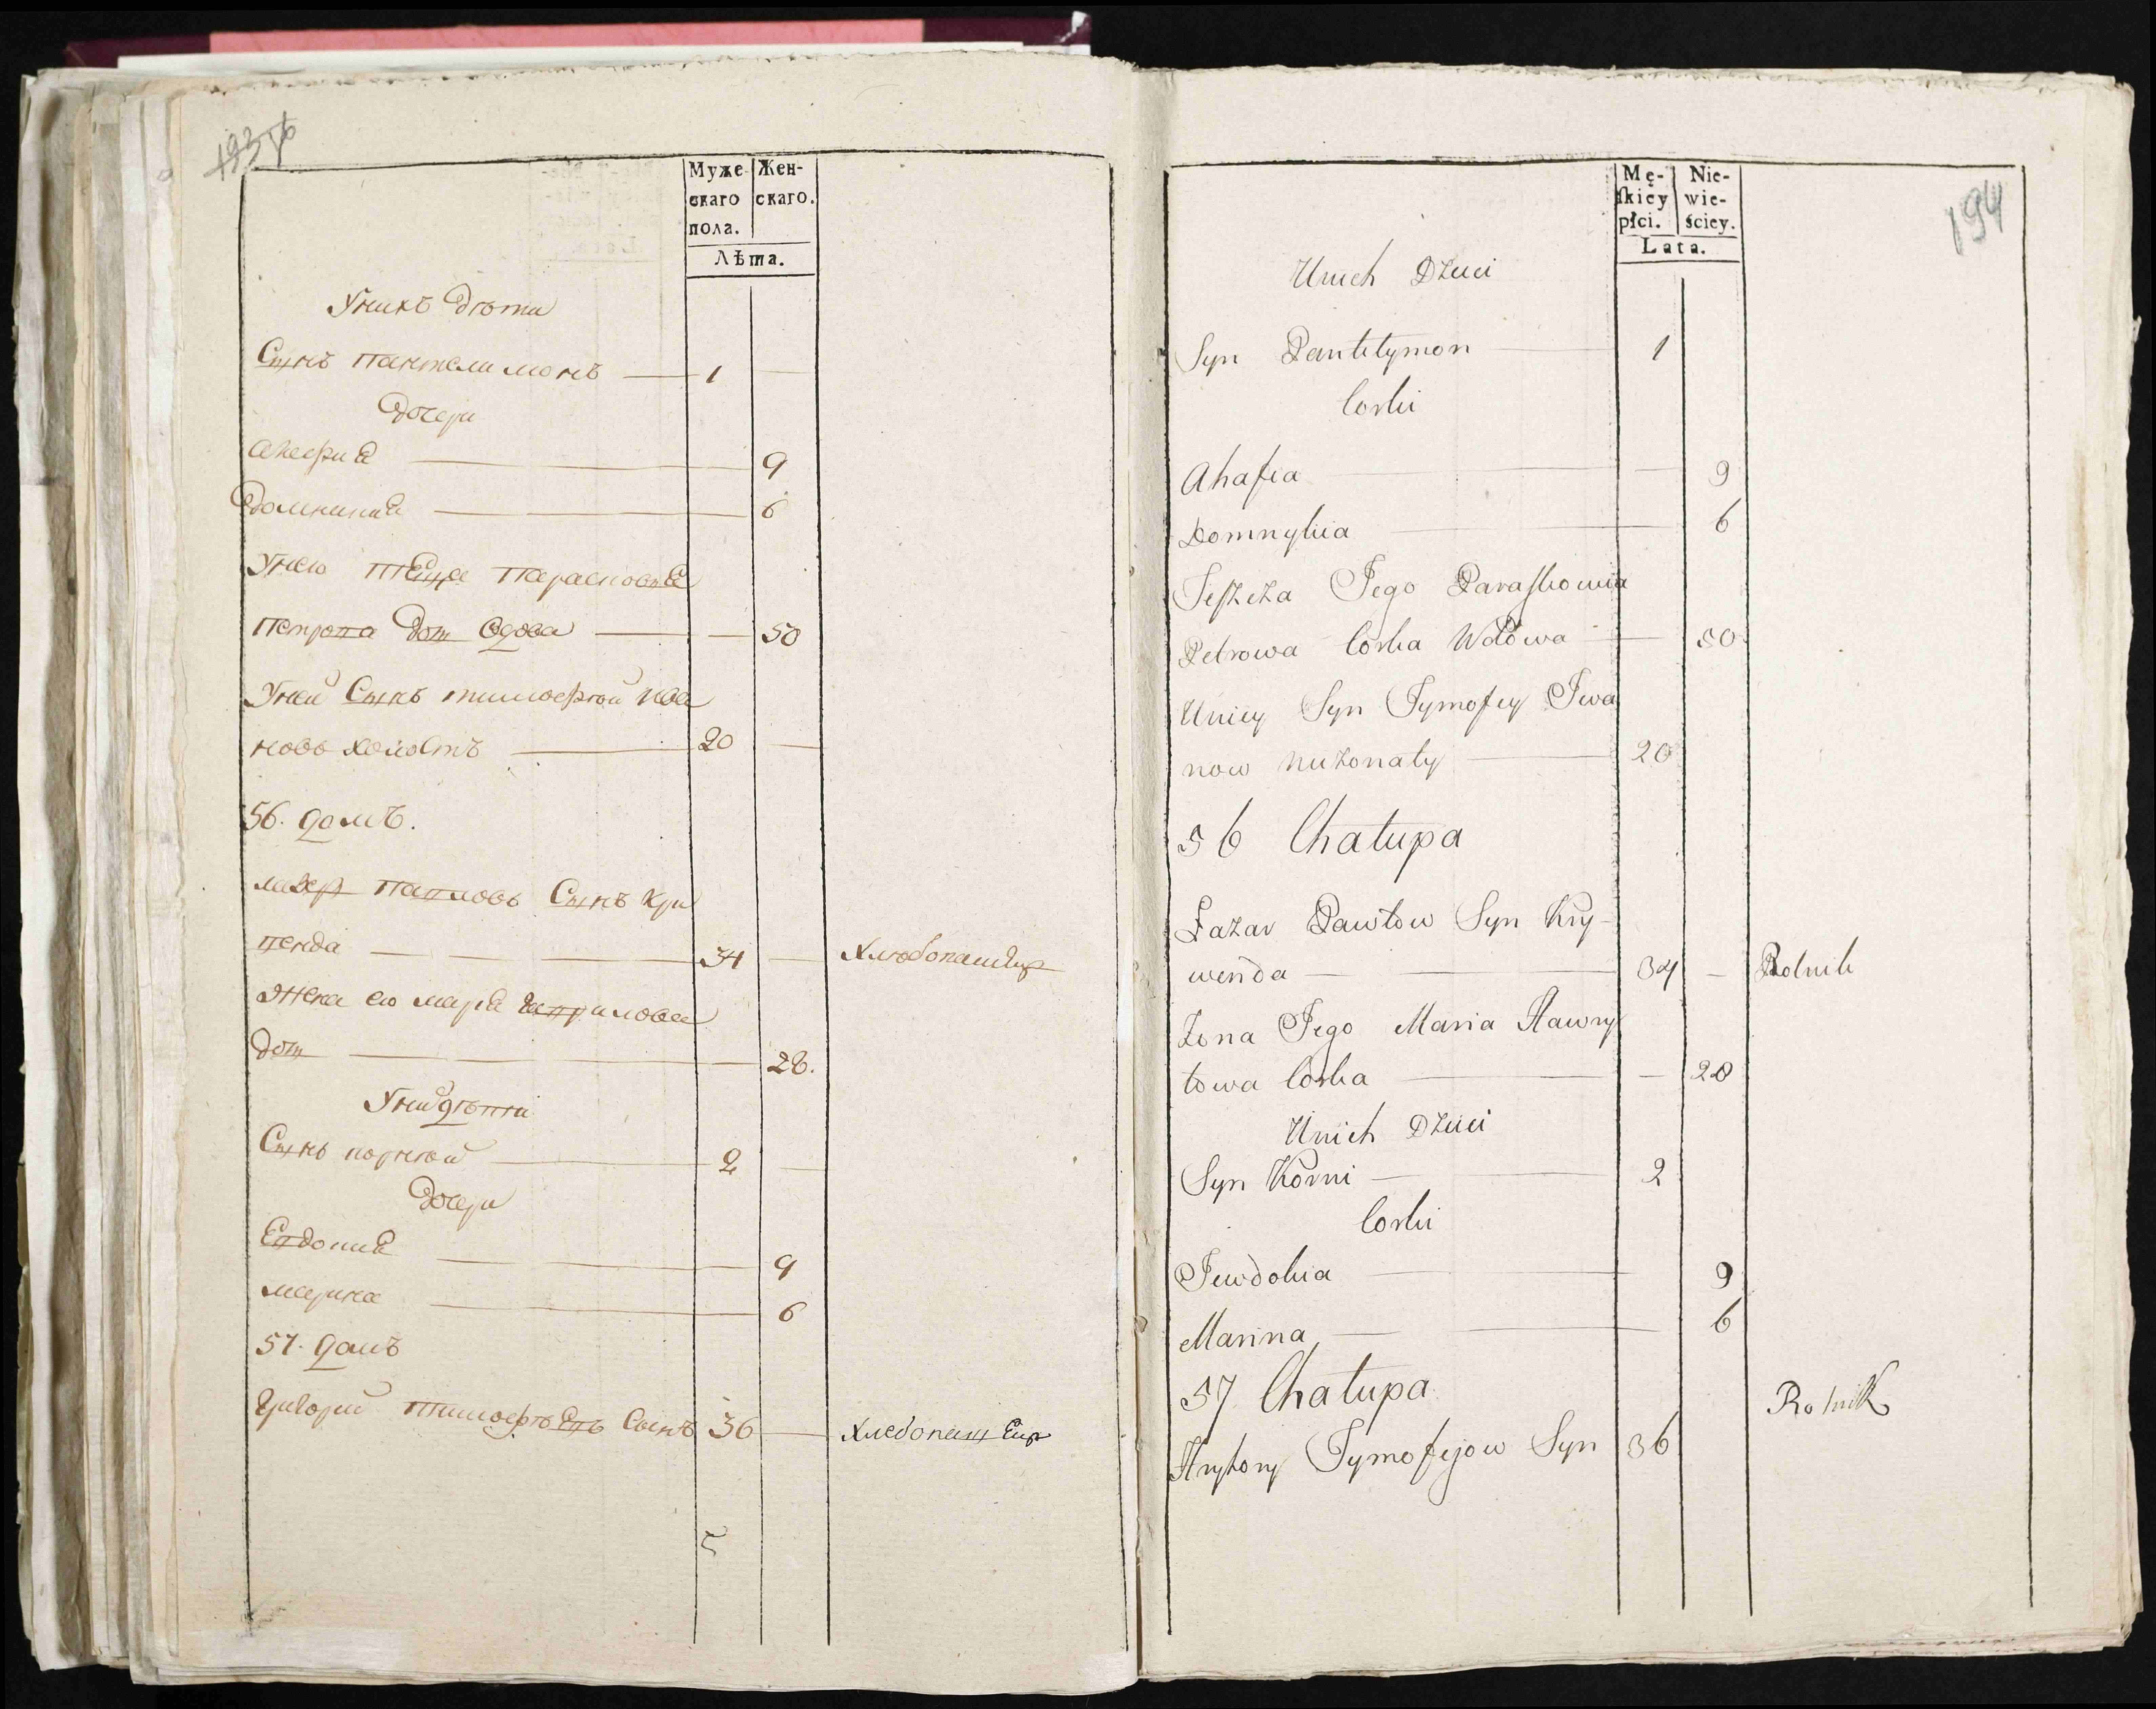 Муже-
скаго
пола.
Жен-
скаго.
Лѣта.
Унихъ дѣти
Сынъ пантелимонъ — 1 —
Дочери
Агафия — 9
Домникия — 6
Унею теща Парасковия
Петрова доч вдова — 50
Уней Сынъ тимофѣй Ива
новъ холостъ — 20 —
56. домъ.
лазар Павловъ Сынъ Кри
венда — 34 — хлѣбопашец
Жена ею мария гаврилова
доч — 28.
Уних дѣти
Сынъ корнѣй — 2 —
Дочери
Евдокия — 9
марина — 6
57. домъ
Григорий Тимофѣевъ Сынъ 36 — хлебопашец
194
Mę-
skiéy
płci.
Nie-
wie-
ściey.
Lata.
Unich Dzieci
Syn Pantelymon — 1
Corki
Ahafia — 9
Domnykia — 6
Teszcza Jego Paraskowia
Petrowa Corka Wdowa — 50
Uniey Syn Tymofey Iwa
now nieżonaty — 20
56 Chałupa
Łazar Pawłow Syn Kry-
wenda — 34 — Rolnik
Żona Jego Maria Hawry
łowa Corka — 28
Unich Dzieci
Syn Korni — 2
Corki
Jewdokia — 9
Marina — 6
57 Chałupa
Hryhory Tymofejow Syn 36 Rolnik